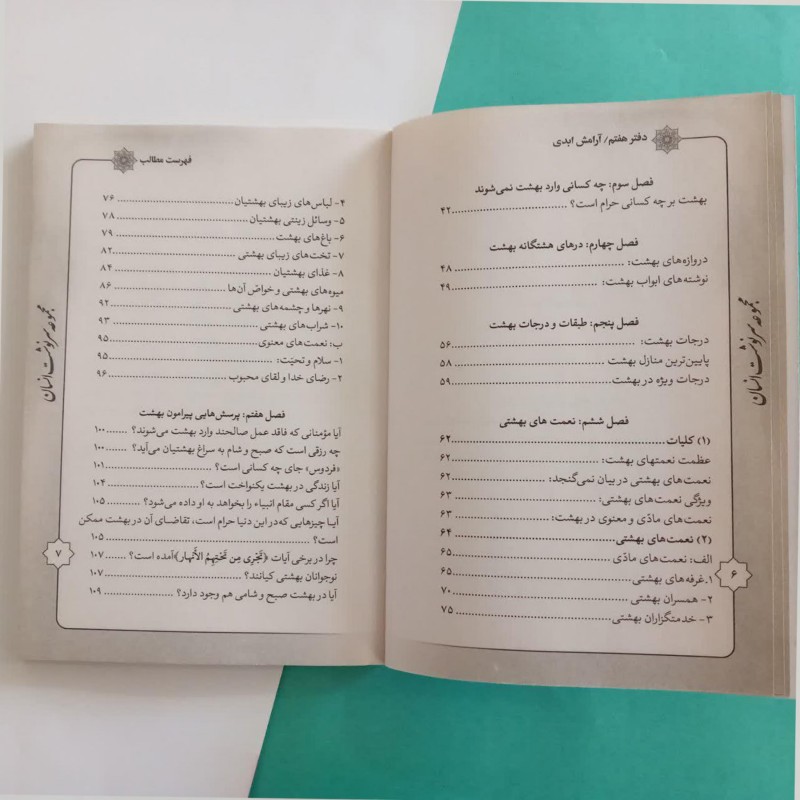 دفتر هفتم/ آرامش ابدی
فصل سوم: چه کسانی وارد بهشت نمی‌شوند
بهشت بر چه کسانی حرام است؟ ........ ۴۲
فصل چهارم: درهای هشتگانه بهشت
دروازه‌های بهشت: ........ ۴۸
نوشته‌های ابواب بهشت: ........ ۴۹
فصل پنجم: طبقات و درجات بهشت
درجات بهشت: ........ ۵۶
پایین‌ترین منازل بهشت ........ ۵۸
درجات ویژه در بهشت ........ ۵۹
فصل ششم: نعمت های بهشتی
(۱) کلیات ........ ۶۲
عظمت نعمتهای بهشت: ........ ۶۲
نعمت‌های بهشتی در بیان نمی‌گنجد: ........ ۶۲
ویژگی نعمت‌های بهشتی: ........ ۶۳
نعمت‌های مادّی و معنوی در بهشت: ........ ۶۳
(۲) نعمت‌های بهشتی ........ ۶۴
الف: نعمت‌های مادّی ........ ۶۵
۱.غرفه‌های بهشتی ........ ۶۵
۲- همسران بهشتی ........ ۷۰
۳- خدمتگزاران بهشتی ........ ۷۵
۶
مجموعه سرنوشت انسان
فهرست مطالب
۴- لباس‌های زیبای بهشتیان ........ ۷۶
۵- وسائل زینتی بهشتیان ........ ۷۸
۶- باغ‌های بهشت ........ ۷۹
۷- تخت‌های زیبای بهشتی ........ ۸۲
۸- غذای بهشتیان ........ ۸۴
میوه‌های بهشتی و خواصّ آن‌ها ........ ۸۶
۹- نهرها و چشمه‌های بهشتی ........ ۹۲
۱۰- شراب‌های بهشتی ........ ۹۳
ب: نعمت‌های معنوی ........ ۹۵
۱- سلام و تحیّت: ........ ۹۵
۲- رضای خدا و لقای محبوب ........ ۹۶
فصل هفتم: پرسش‌هایی پیرامون بهشت
آیا مؤمنانی که فاقد عمل صالحند وارد بهشت می‌شوند؟ ........ ۱۰۰
چه رزقی است که صبح و شام به سراغ بهشتیان می‌آید؟ ........ ۱۰۰
«فردوس» جای چه کسانی است؟ ........ ۱۰۱
آیا زندگی در بهشت یکنواخت است؟ ........ ۱۰۴
آیا اگر کسی مقام انبیاء را بخواهد به او داده می‌شود؟ ........ ۱۰۵
آیا چیزهایی که در این دنیا حرام است، تقاضای آن در بهشت ممکن
است؟ ........ ۱۰۵
چرا در برخی آیات ﴿تَجْرِی مِن تَحْتِهِمُ الأَنْهار﴾ آمده است؟ ........ ۱۰۷
نوجوانان بهشتی کیانند؟ ........ ۱۰۷
آیا در بهشت صبح و شامی هم وجود دارد؟ ........ ۱۰۹
۷
مجموعه سرنوشت انسان